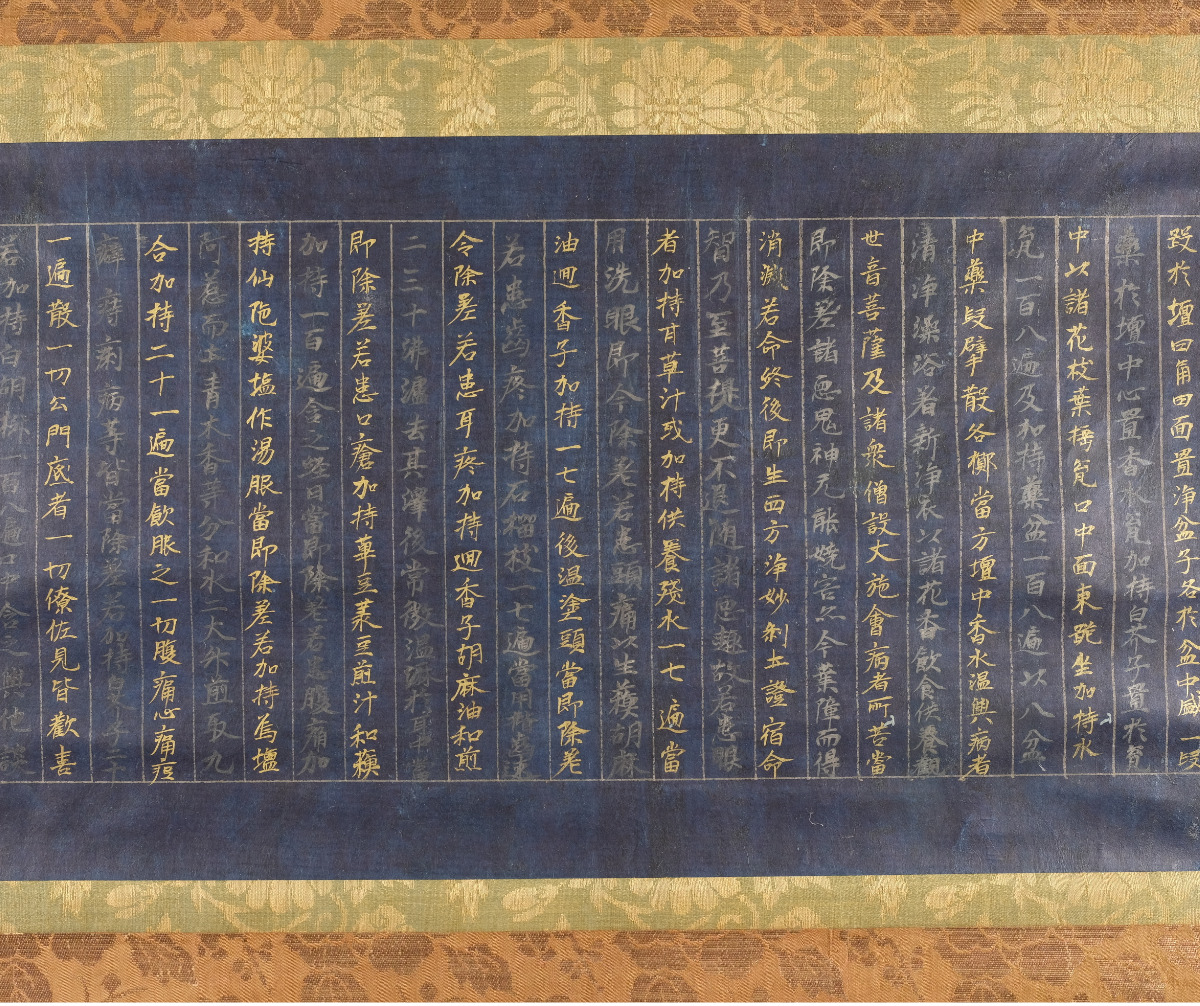 段於壇四角四面置淨盆子各於盆中盛一段
藥於壇中心置香水瓮加持子置於瓮
中以諸花枝葉插瓮口中面東跪坐加持水
瓮一百八遍及加持藥盆一百八遍以八盆
中藥段擘散各擲當方壇中香水温與病者
清淨澡浴著新淨衣以諸花香飲食供養觀
世音菩薩及諸衆僧設大施會病者所苦當
即除差諸惡鬼神无能嬈害亦令業障而得
消滅若命終後即生西方淨妙刹土證宿命
智乃至菩提更不退隨諸惡趣故若患眼
者加持甘草汁或加持供養殘水一七遍當
用洗眼即令除差若患頭痛以生蘇胡麻
油迴香子加持一七遍後温塗頭當即除差
若患齒疼加持石榴枝一七遍當用揩齒速
令除差若患耳疼加持迴香子胡麻油和煎
二三十沸濾去其滓後常微温渧於耳中當
即除差若患口瘡加持蓽豆菉豆煎汁和蘇
加持一百遍含之日當即除差若患腹痛加
持仙陁婆塩作湯服當即除差若加持烏塩
阿惹而青木香等分和水二大升煎取九
合加持二十一遍當飲服之一切腹痛心痛痃
癖痔痢病等皆當除差若加持子二十
一遍散一切公門底者一切僚佐見皆歡喜
若加持白胡椒一百八遍口中含之與他談